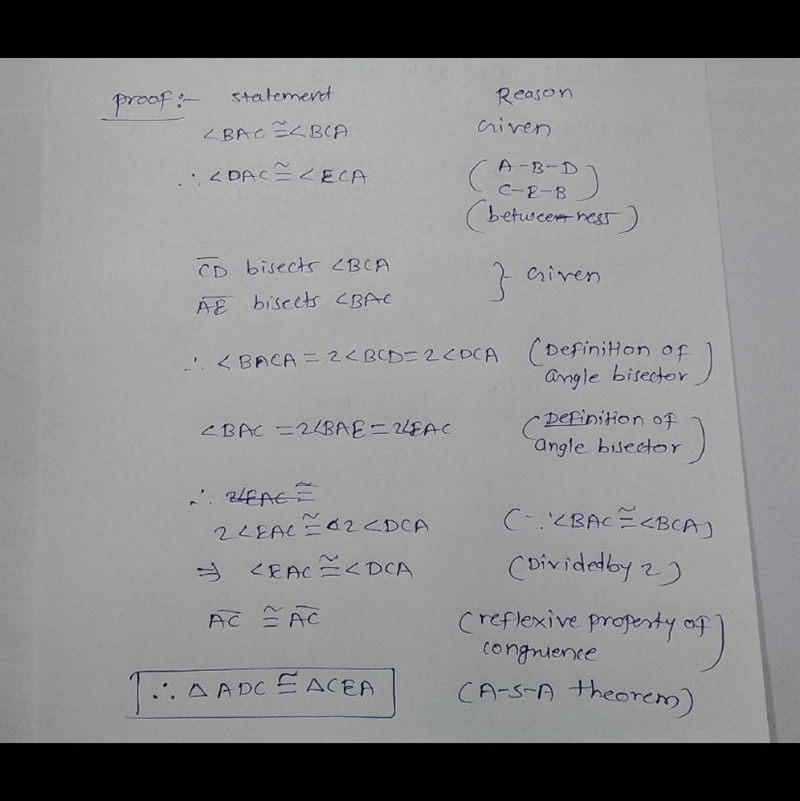 proof:- statement Reason
∠BAC ≅ ∠BCA Given
∴ ∠DAC ≅ ∠ECA (A-B-D
C-E-B)
(betweenness)
CD bisects ∠BCA } Given
AE bisects ∠BAC
∴ ∠BACA = 2∠BCD = 2∠DCA (Definition of
angle bisector)
∠BAC = 2∠BAE = 2∠EAC (Definition of
angle bisector)
∴ 2∠EAC ≅
2∠EAC ≅ 2∠DCA (∵ ∠BAC ≅ ∠BCA)
⇒ ∠EAC ≅ ∠DCA (Dividedby 2)
AC ≅ AC (reflexive property of
congruence)
∴ △ADC ≅ △CEA (A-S-A theorem)